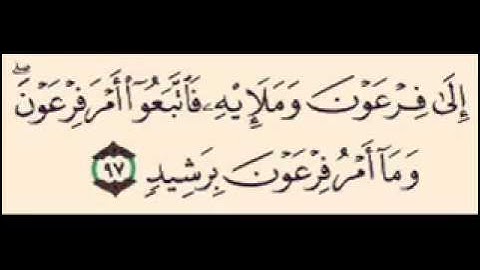 إِلَىٰ فِرْعَوْنَ وَمَلَإِيْهِۦ فَٱتَّبَعُوٓا۟ أَمْرَ فِرْعَوْنَ ۖ
وَمَآ أَمْرُ فِرْعَوْنَ بِرَشِيدٍ ٩٧